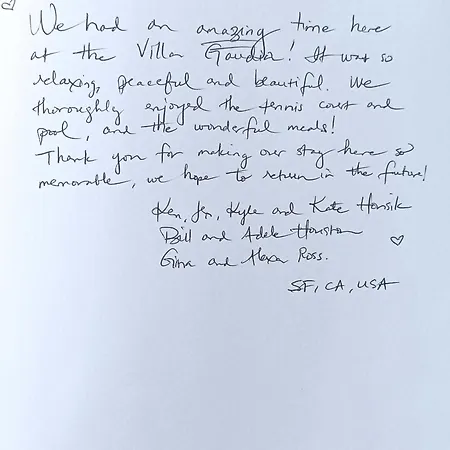 We had an amazing time here
at the Villa Gaudia! It was so
relaxing, peaceful and beautiful. We
thoroughly enjoyed the tennis court and
pool, and the wonderful meals!
Thank you for making our stay here so
memorable, we hope to return in the future!
Ken, Jen, Kyle and Kate
Bill and Adele Houston
Gina and Alexa Ross.
SF, CA, USA